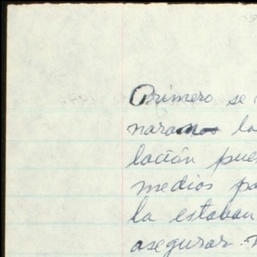 Primero se
naramos la
lación pues
medios pa
la estaban
asegurar